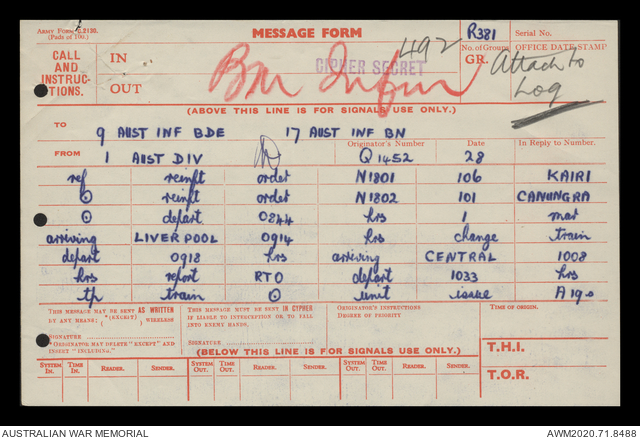 Army Form C.2136.
(Pads of 100.)
MESSAGE FORM
R381
Serial No.
CALL AND INSTRUCTIONS.
IN
OUT
Bn Infm
CIPHER SECRET
492
No. of Groups
GR.
OFFICE DATE STAMP
Attach to Log
(ABOVE THIS LINE IS FOR SIGNALS USE ONLY.)
TO
9 AUST INF BDE 17 AUST INF BN
FROM
1 AUST DIV
Originator's Number
Q1452
Date
28
In Reply to Number.
ref reinft order N1801 106 KAIRI
⊙ reinft order N1802 101 CANUNGRA
⊙ depart 0844 hrs 1 mar
arriving LIVERPOOL 0914 hrs change train
depart 0918 hrs arriving CENTRAL 1008
hrs report RTO depart 1033 hrs
tp train ⊙ unit issue A19.
THIS MESSAGE MAY BE SENT AS WRITTEN BY ANY MEANS; (EXCEPT) WIRELESS
SIGNATURE
*ORIGINATOR MAY DELETE "EXCEPT" AND INSERT "INCLUDING."
THIS MESSAGE MUST BE SENT IN CIPHER IF LIABLE TO INTERCEPTION OR TO FALL INTO ENEMY HANDS.
SIGNATURE
ORIGINATOR'S INSTRUCTIONS
DEGREE OF PRIORITY
TIME OF ORIGIN.
T.H.I.
T.O.R.
(BELOW THIS LINE IS FOR SIGNALS USE ONLY.)
SYSTEM IN. TIME IN. READER. SENDER. SYSTEM OUT. TIME OUT. READER. SENDER. SYSTEM OUT. TIME OUT. READER. SENDER.
AUSTRALIAN WAR MEMORIAL
AWM2020.71.8488